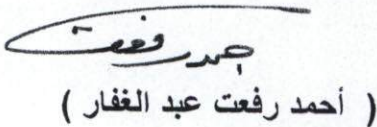 أحمد رفعت
( أحمد رفعت عبد الغفار )